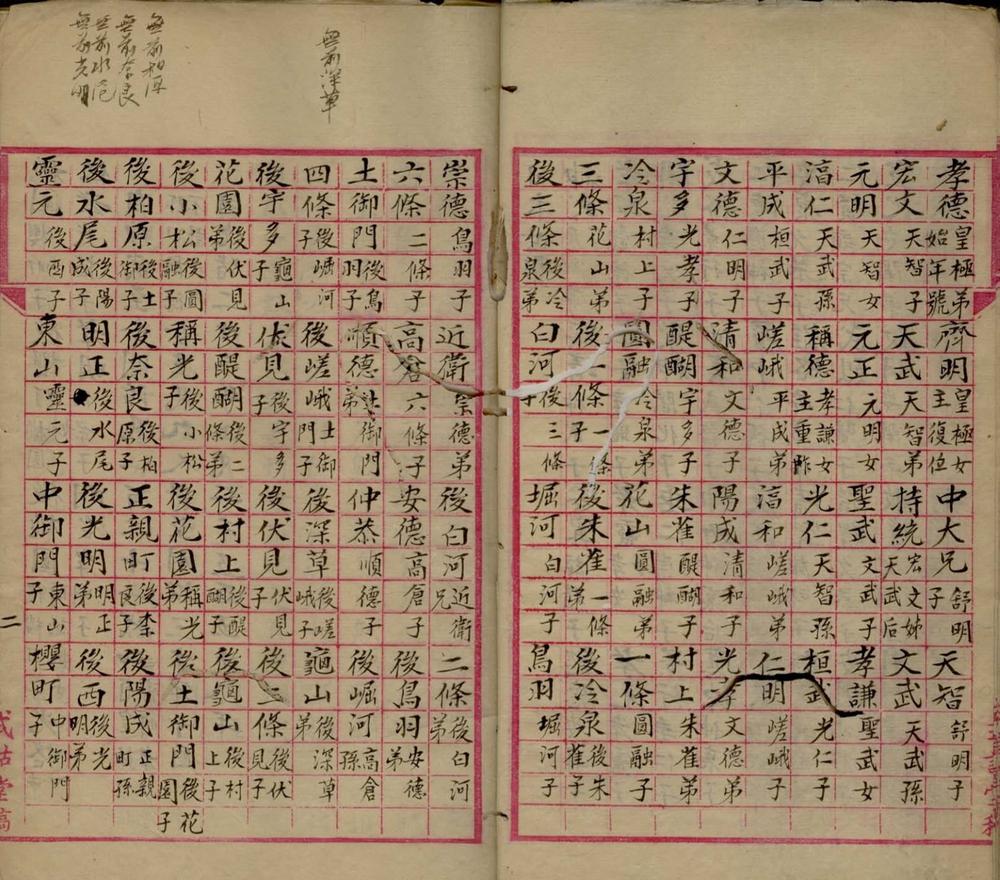 孝德皇極弟始年號齊明皇極女主復位中大兄舒明子天智舒明子
宏文天智子天武天智弟持統宏文姊天武后文武天武孫
元明天智女元正元明女聖武文武子孝謙聖武女
湻仁天武孫稱德孝謙女主重祚光仁天智孫桓武光仁子
平成桓武子嵯峨平成弟湻和嵯峨弟仁明嵯峨子
文德仁明子清和文德子陽成清和子光孝文德弟
宇多光孝子醍醐宇多子朱雀醍醐子村上朱雀弟
冷泉村上子圓融冷泉弟花山圓融弟一條圓融子
三條花山弟後一條一條子後朱雀一條弟後冷泉後朱雀子
後三條後冷泉弟白河後三條子堀河白河子鳥羽堀河子
崇德鳥羽子近衛崇德弟後白河近衛兄二條後白河弟
六條二條子高倉六條子安德高倉子後鳥羽安德弟
土御門後鳥羽子順德土御門弟仲恭順德子後崛河高倉孫
四條後崛河子後嵯峨土御門子後深草後嵯峨子龜山後深草弟
後宇多龜山子伏見後宇多子後伏見伏見子後二條後伏見子
花園後伏見弟後醍醐後二條弟後村上後醍醐子後龜山後村上子
後小松後圓融子稱光後小松子後花園稱光弟後土御門後花園子
後柏原後土御門子後奈良後柏原子正親町後奈良子後陽成正親町孫
後水尾後陽成子明正後水尾子後光明明正弟後西後光明弟
靈元後西子東山靈元子中御門東山子櫻町中御門子
無前深草
無前柏原
無前奈良
無前水尾
無前光明
二